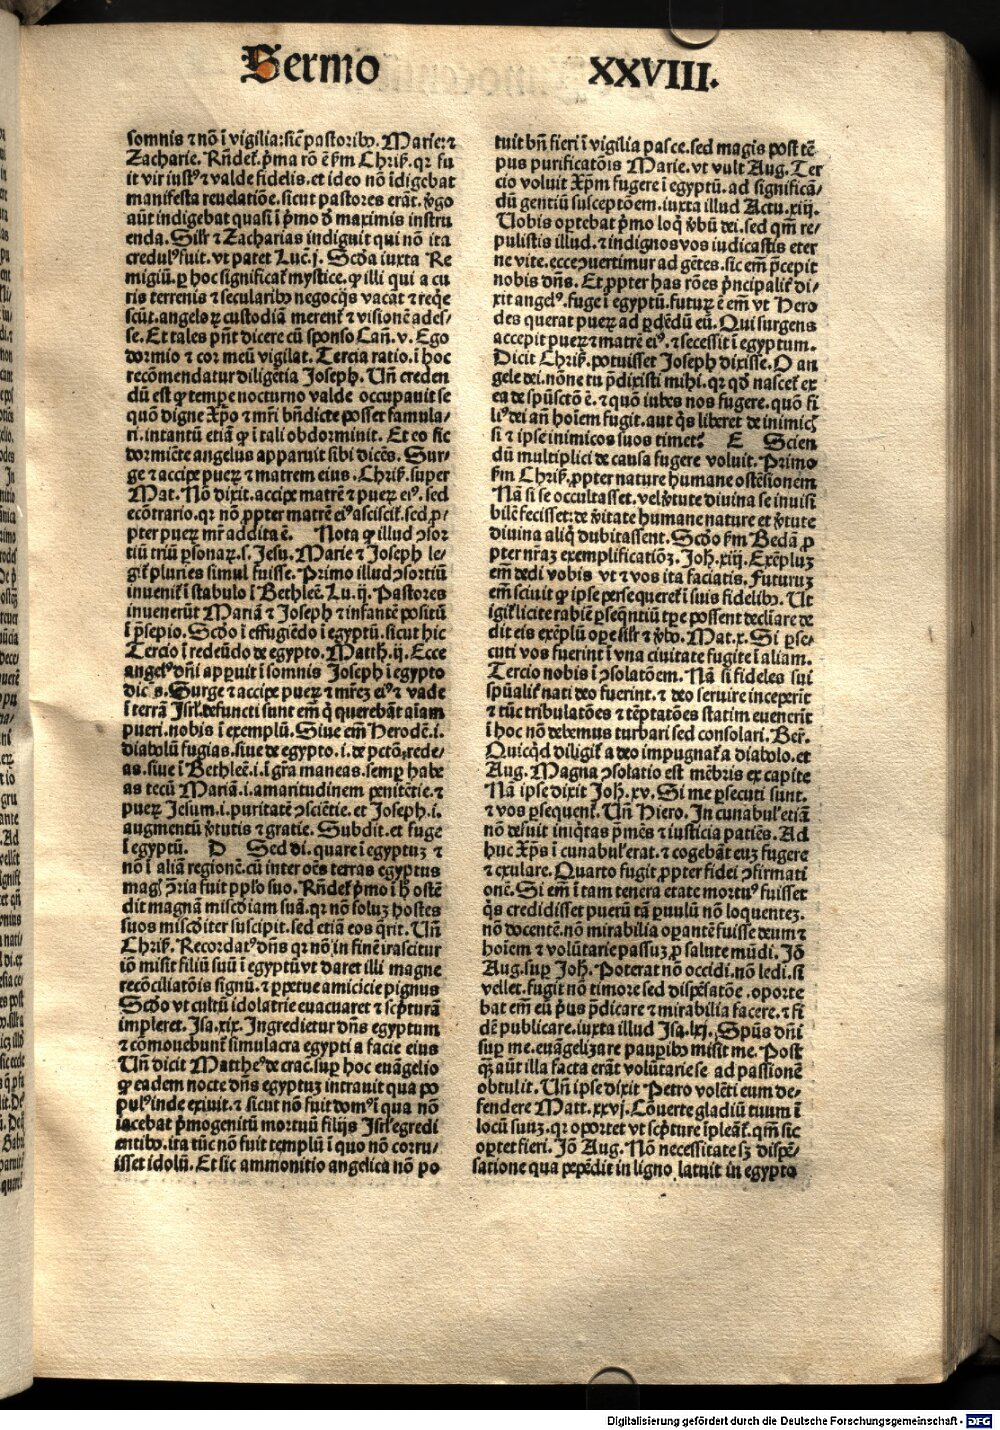 Sermo XXVIII.
somnis ⁊ nō ī vigilia: sic̄ pastoribꝰ. Marie: ⁊
Zacharie. Rn̄det̄. p̄ma rō ē ẜm Chriſ. qr fu
it vir iustꝰ ⁊ valde fidelis. et ideo nō īdigebat
manifesta reuelatiōe. sicut pastores erāt. ꝟgo
aūt indigebat quasi ī pͥmo ⁊ maximis instru
enda. Silr ⁊ Zacharias indiguit qui nō ita
credulꝰ fuit. vt patet Luc̄. j. Scd̄a iuxta Re
migiū. ꝑ hoc significat̄ mystice. ꝙ illi qui a cu
ris terrenis ⁊ secularibꝰ negocijs vacāt ⁊ reqͥe
scūt. angeloꝝ custodiā merent̄ ⁊ visionē ades-
se. Et tales pn̄t dicere cū sponso Can̄. v. Ego
dormio ⁊ cor meū vigilat. Tercia ratio. ī hoc
recōmendatur diligētia Joseph. Un̄ creden
dū est ꝙ tempe nocturno valde occupauit se
quō digne Xp̄o ⁊ mr̄i bn̄dicte posset famula-
ri. intantū etiā ꝙ ī tali obdorminit. Et eo sic
dormiēte angelus apparuit sibi dicēs. Sur-
ge ⁊ accipe pueꝝ ⁊ matrem eius. Chriſ. super
Mat. Nō dixit. accipe matrē ⁊ pueꝝ eiꝰ. sed
ecōtrario. qr nō ꝓpter matrē eiꝰ asciscit̄. sed ꝓ-
pter pueꝝ mr̄ addita ē. Nota ꝙ illud ↄsor
tiū triū ꝑsonaꝝ. s. Jesu. Marie ⁊ Joseph le-
git̄ pluries simul fuisse. Primo illud ↄsortiū
inuenit̄ ī stabulo ī Bethleē. Lu. ij. Pastores
inuenerūt Mariā ⁊ Joseph ⁊ infantē positū
ī p̄sepio. Scd̄o ī effugiēdo ī egyptū. sicut hic
Tercio ī redeūdo de egypto. Matth. ij. Ecce
angelꝰ dn̄i apparuit ī somnis Joseph ī egypto
dicēs. Surge ⁊ accipe pueꝝ ⁊ mr̄eꝫ eiꝰ ⁊ vade
ī terrā Jsrl̄. defuncti sunt em̄ q̄ querebāt aīam
pueri. nobis ī exemplū. Siue em̄ Herodē. i.
diabolū fugias. siue de egypto. i. de pctō. rede-
as. siue ī Bethleē. i. ī gr̄a maneas. semꝑ habe
as tecū Mariā. i. amaritudinem penitētie. ⁊
pueꝝ Jesum. i. puritatē ↄsciētie. et Joseph. i.
augmentū ꝟtutis ⁊ gratie. Subdit. et fuge
ī egyptū. D Sed di. quare ī egyptuꝫ ⁊
nō ī aliā regionē. cū inter oēs terras egyptus
magꝭ ↄ̄ria fuit pp̄lo suo. Rn̄det̄. pͥmo ī h̄ ostē
dit magnā misc̄diam suā. qr nō soluꝫ hostes
suos misc̄diter suscipit. sed etiā eos qͥrit. Un̄
Chriſ. Recordatꝰ dn̄s qr nō in finē irascitur
iō misit filiū suū ī egyptū vt daret illi magne
recōciliatōis signū. ⁊ ꝑpetue amicicie pignus
Scd̄o vt cultū idolatrie euacuaret ⁊ scͥpturā
impleret. Jsa. xix. Ingredietur dn̄s egyptum
⁊ cōmouebunt̄ simulacra egypti a facie eius
Un̄ dicit Mattheꝰ de crac̄. suꝑ hoc euāgelio
ꝙ eadem nocte dn̄s egyptuꝫ intrauit qua po
pulꝰ inde exiuit. ⁊ sicut nō fuit domꝰ ī qua nō
iacebat pͥmogenitū mortuū filijs Jsrl̄ egredi
entibꝰ. ita tūc nō fuit templū ī quo nō corru-
isset idolū. Et sic ammonitio angelica nō po
tuit bn̄ fieri ī vigilia pasce. sed magis post tē
pus purificatōis Marie. vt vult Aug. Ter
cio voluit Xp̄m fugere ī egyptū. ad significā-
dū gentiū susceptōem. iuxta illud Actu. xiij.
Uobis oꝑtebat pͥmo loqͥ ꝟbū dei. sed qm̄ re-
pulistis illud. ⁊ indignos vos iudicastis eter
ne vite. ecce ↄuertimur ad gētes. sic em̄ p̄cepit
nobis dn̄s. Et ꝓpter has rōes pͥncipalit̄ di-
xit angelꝰ. fuge ī egyptū. futuꝝ ē em̄ vt Hero
des querat pueꝝ ad ꝑdēdū eū. Qui surgens
accepit pueꝝ ⁊ matrē eiꝰ. ⁊ secessit ī egyptum.
Dicit Chriſ. potuisset Joseph dixisse. O an
gele dei. nōne tu p̄dixisti mihi. qr qd̄ nascet̄ ex
ea de spūsctō ē. ⁊ quō iubes nos fugere. quō fi
liꝰ dei an̄ hoīem fugit. aut qͥs liberet de inimicꝭ
si ⁊ ipse inimicos suos timet? E Scien
dū multiplici de causa fugere voluit. Primo
ẜm Chriſ. ꝓpter nature humane ostēsionem
Nā si se occultasset. vel ꝟtute diuina se inuisi
bilē fecisset: de ꝟitate humane nature et ꝟtute
diuina aliqͥ dubitassent. Scd̄o ẜm Bedā ꝓ
pter nr̄aꝫ exemplificatiōꝫ. Joh̄. xiij. Exēpluꝫ
em̄ dedi vobis vt ⁊ vos ita faciatis. Futuruꝫ
em̄ sciuit ꝙ ipse persequeret̄ ī suis fidelibꝰ. Ut
igit̄ licite rabiē ꝑseqͥntiū tꝑe possent decliare de
dit eis exēplū oꝑe silr̄ ⁊ ꝟbo. Mat. x. Si ꝑse-
cuti vos fuerint ī vna ciuitate fugite ī aliam.
Tercio nobis ī ↄsolatōem. Nā si fideles sui
spūalit̄ nati deo fuerint. ⁊ deo seruire inceperīt
⁊ tūc tribulatōes ⁊ tēptatōes statim euenerīt
ī hoc nō debemus turbari sed consolari. Ber̄.
Quicqͥd diligit̄ a deo impugnat̄ a diabolo. et
Aug. Magna ↄsolatio est mēbris ex capite
Nā ipse dixit Joh̄. xv. Si me ꝑsecuti sunt.
⁊ vos ꝑsequent̄. Un̄ Hiero. In cunabul̄ etiā
nō desuit iniqͥtas pͥmēs ⁊ iusticia patiēs. Ad
huc Xp̄s ī cunabul̄ erat. ⁊ cogebāt euꝫ fugere
⁊ exulare. Quarto fugit ꝓpter fidei ↄfirmati
onē. Si em̄ ī tam tenera etate mortuꝰ fuisset
qͥs credidisset puerū tā ꝑuulū nō loquenteꝫ.
nō docentē. nō mirabilia oꝑantē fuisse deum ⁊
hoīem ⁊ volūtarie passuꝫ ꝓ salute mūdi. Jō
Aug. suꝑ Joh̄. Poterat nō occidi. nō ledi. si
vellet. fugit nō timore sed dispēsatōe. oporte
bat em̄ eū pͥus p̄dicare ⁊ mirabilia facere. ⁊ fi
dē publicare. iuxta illud Jsa. lxj. Spūs dn̄i
suꝑ me. euāgelizare pauꝑibꝰ misit me. Post
qꝫ aūt illa facta erāt volūtarie se ad passionē
obtulit. Un̄ ipse dixit Petro volēti eum de-
fendere Matt. xxvj. Cōuerte gladiū tuum ī
locū suuꝫ. qr oportet vt scͥpture īpleāt̄. qm̄ sic
oꝑtet fieri. Jō Aug. Nō necessitate sꝫ dispē-
satione qua pepēdit in ligno. latuit in egypto
Digitalisierung gefördert durch die Deutsche Forschungsgemeinschaft - DFG